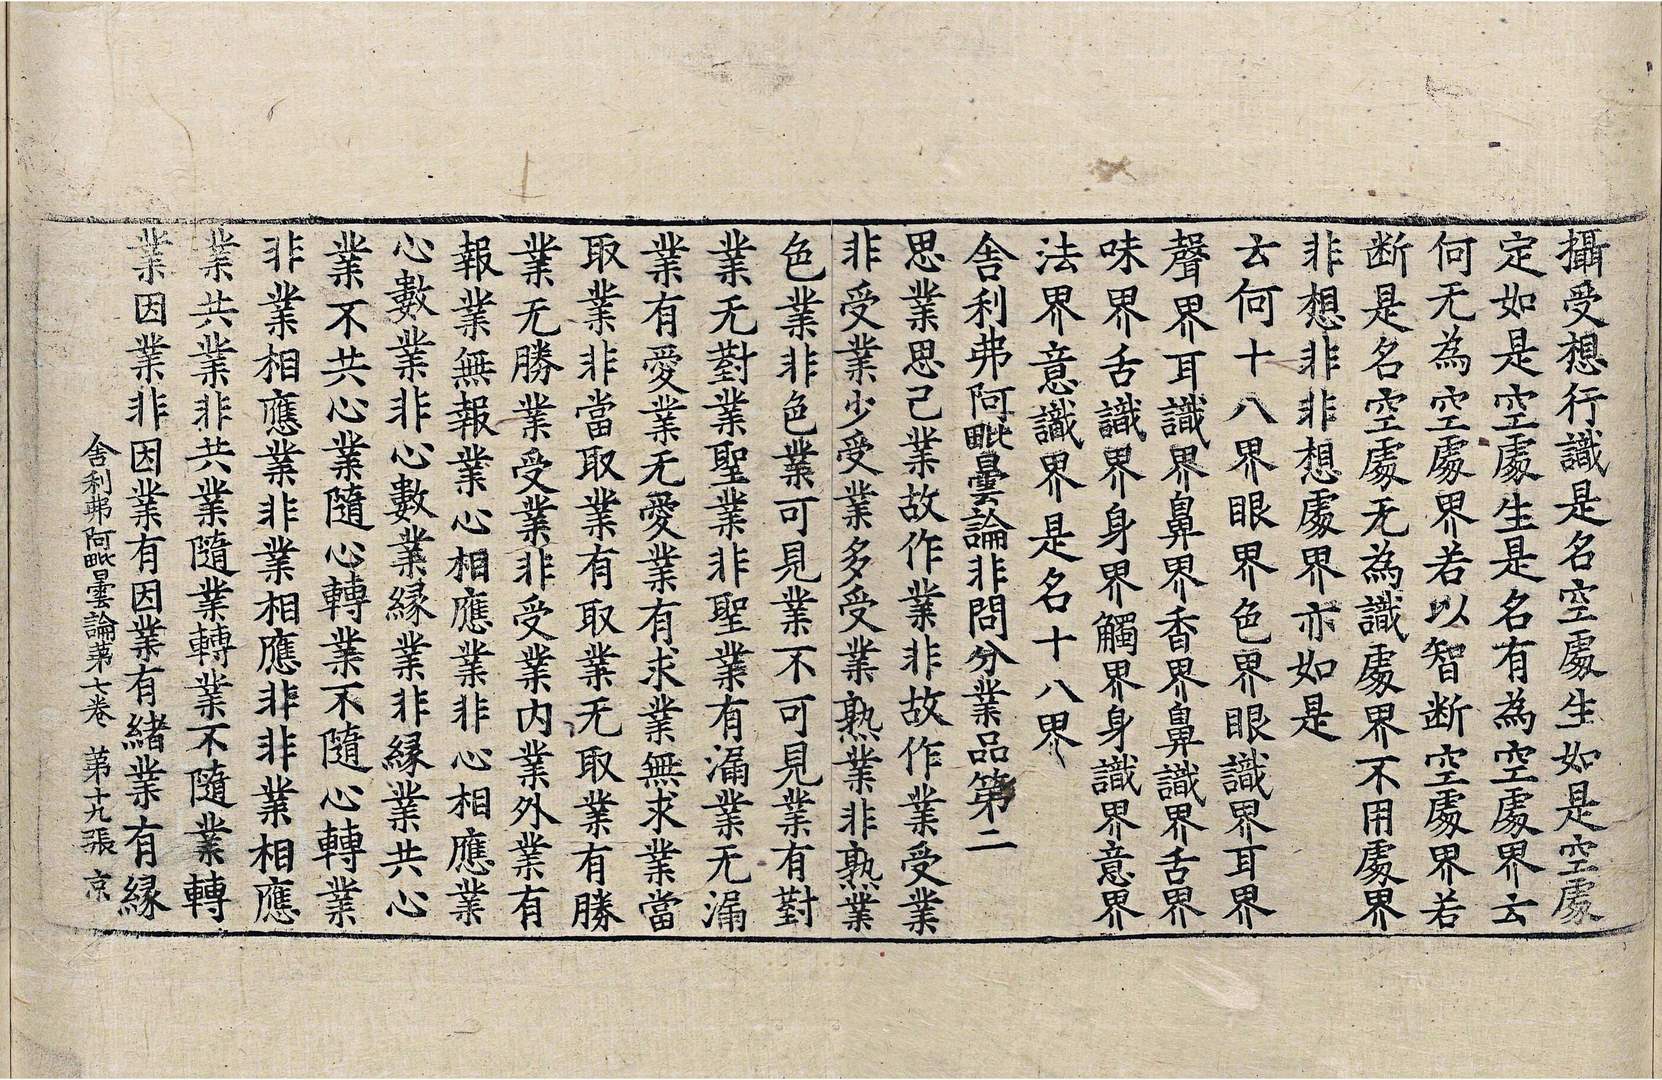 攝受想行識是名空處生如是空處
定如是空處生是名有為空處界云
何无為空處界若以智斷空處界若
断是名空處无為識處界不用處界
非想非非想處界亦如是
云何十八界眼界色界眼識界耳界
聲界耳識界鼻界香界鼻識界舌界
味界舌識界身界觸界身識界意界
法界意識界是名十八界
舍利弗阿毗曇論非問分業品第二
思業思已業故作業非故作業受業
非受業少受業多受業熟業非熟業
色業非色業可見業不可見業有對
業无對業聖業非聖業有漏業无漏
業有愛業无愛業有求業無求業當
取業非當取業有取業无取業有勝
業无勝業受業非受業內業外業有
報業無報業心相應業非心相應業
心數業非心數業緣業非緣業共心
業不共心業隨心轉業不隨心轉業
非業相應業非業相應非非業相應
業共業非共業隨業轉業不隨業轉
業因業非因業有因業有緒業有緣
舍利弗阿毗曇論第七卷 第十九張 京